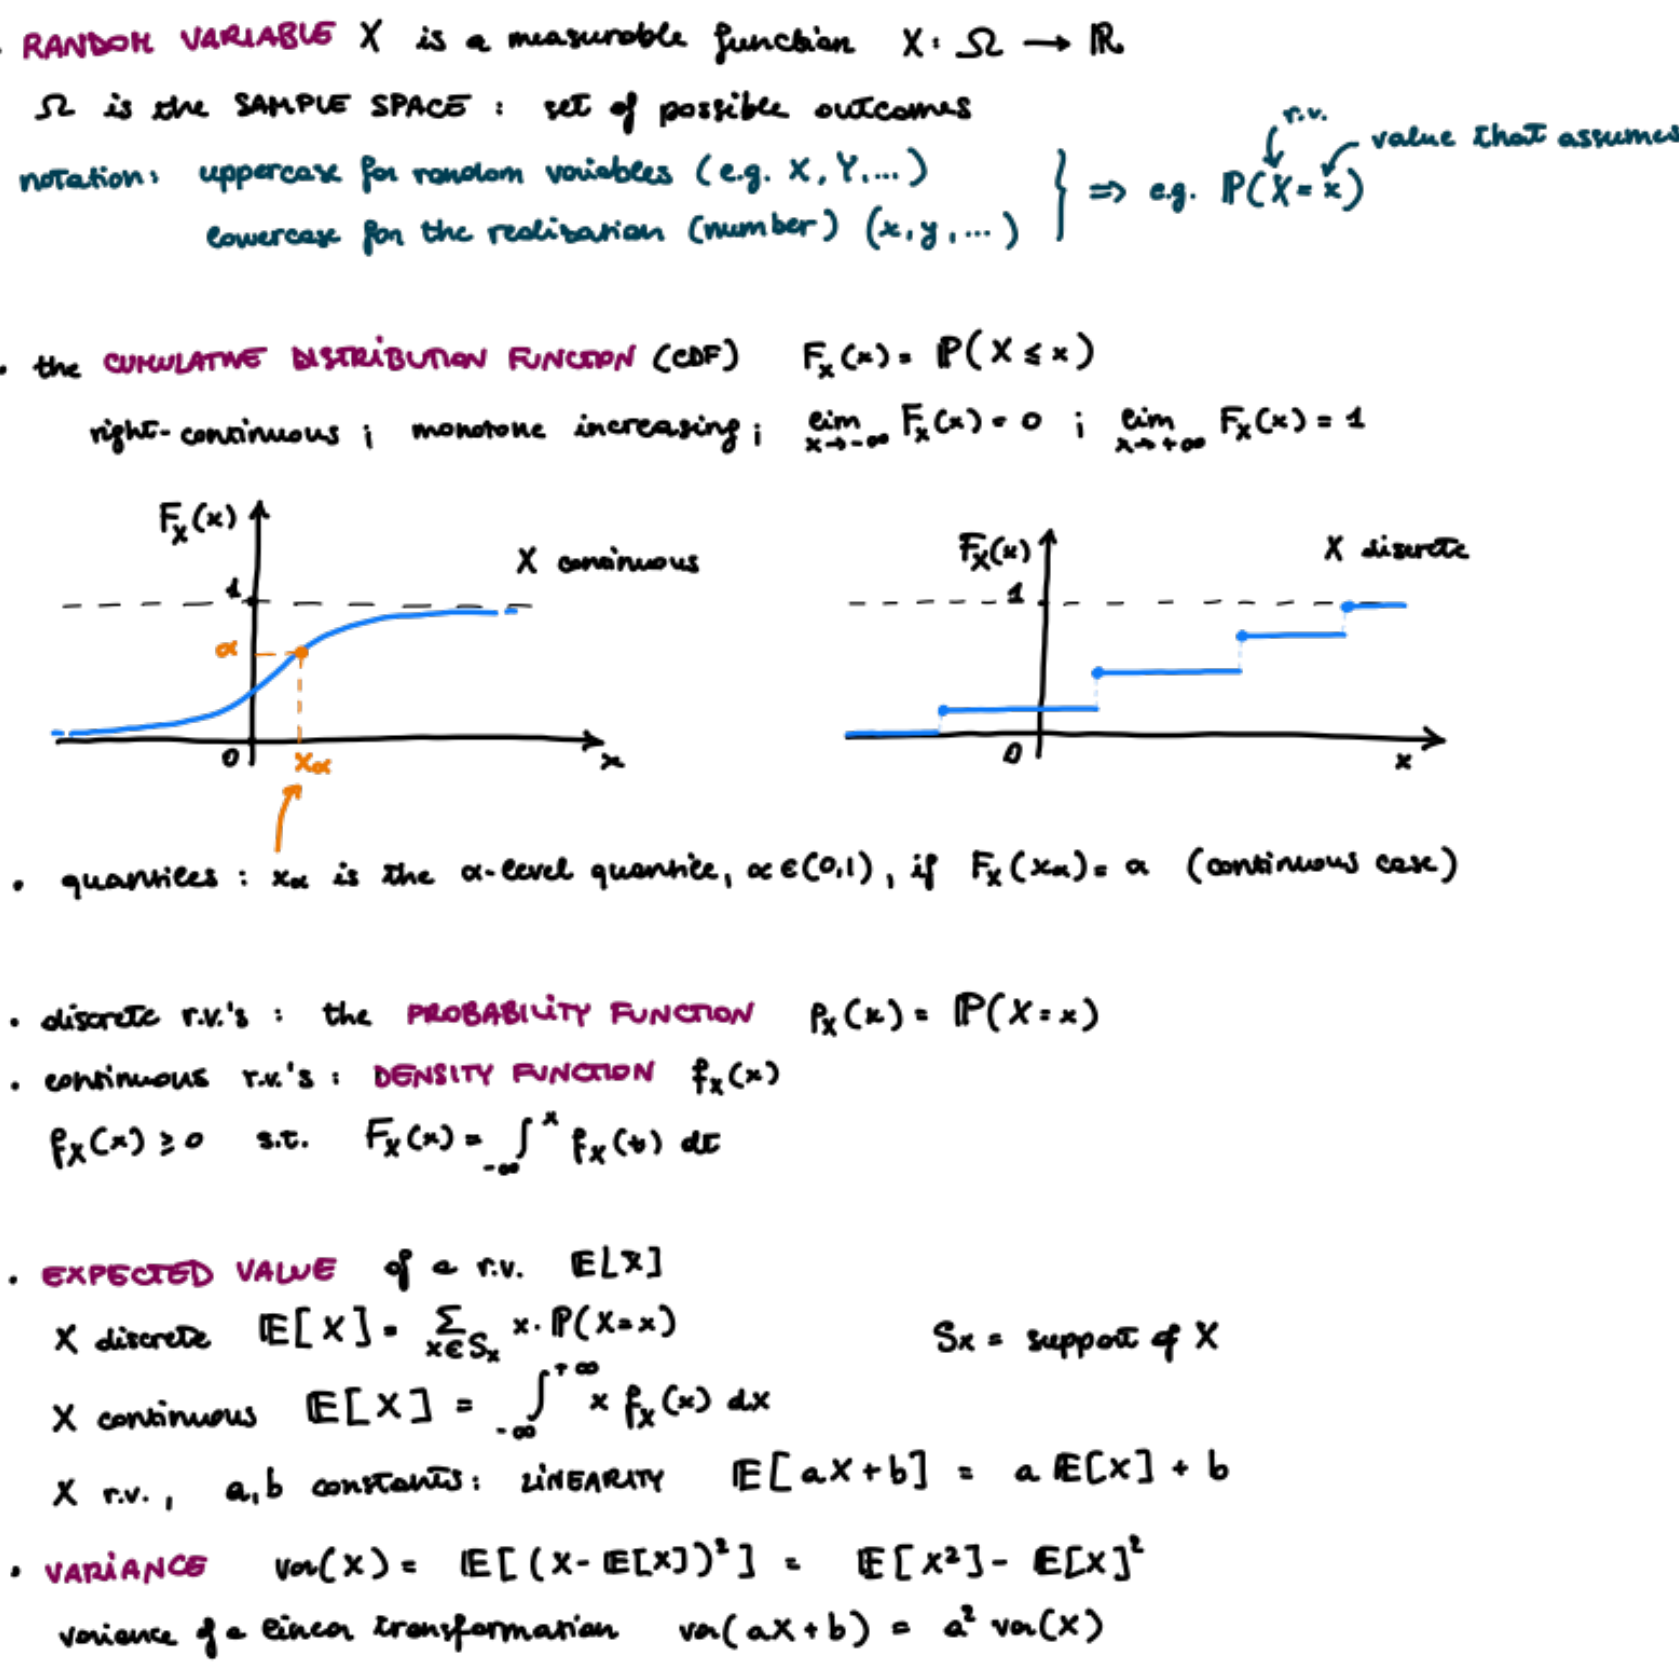 • RANDOM VARIABLE X is a measurable function X: Ω → ℝ
Ω is the SAMPLE SPACE : set of possible outcomes
notation: uppercase for random variables (e.g. X, Y, ...)
lowercase for the realization (number) (x, y, ...)
} ⇒ e.g. ℙ(X = x)
r.v.
value that assumes
• the CUMULATIVE DISTRIBUTION FUNCTION (CDF) F_X(x) = ℙ(X ≤ x)
right-continuous ; monotone increasing ; lim_{x→-∞} F_X(x) = 0 ; lim_{x→+∞} F_X(x) = 1
F_X(x)
X continuous
1
α
0
x_α
x
F_X(x)
X discrete
1
0
x
• quantiles : x_α is the α-level quantile, α ∈ (0,1), if F_X(x_α) = α (continuous case)
• discrete r.v.'s : the PROBABILITY FUNCTION p_X(x) = ℙ(X = x)
• continuous r.v.'s : DENSITY FUNCTION f_X(x)
f_X(x) ≥ 0 s.t. F_X(x) = ∫_{-∞}^{x} f_X(t) dt
• EXPECTED VALUE of a r.v. 𝔼[X]
X discrete 𝔼[X] = Σ_{x∈S_X} x · ℙ(X = x) S_X = support of X
X continuous 𝔼[X] = ∫_{-∞}^{+∞} x f_X(x) dx
X r.v., a, b constants: LINEARITY 𝔼[aX + b] = a 𝔼[X] + b
• VARIANCE var(X) = 𝔼[(X - 𝔼[X])²] = 𝔼[X²] - 𝔼[X]²
variance of a linear transformation var(aX + b) = a² var(X)